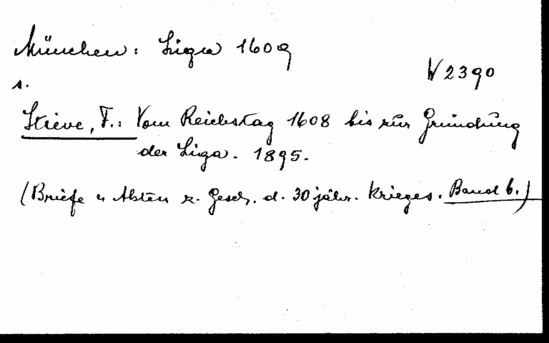 München: Liga 1609
W 2390
s.
Stieve, F.: Vom Reichstag 1608 bis zur Gründung
der Liga. 1895.
(Briefe u Akten z. Gesch. d. 30 jähr. Krieges. Band 6.)